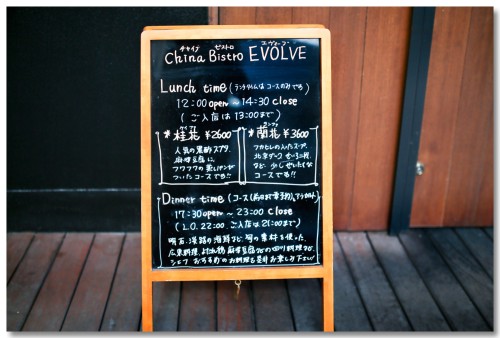 チャイナ ビストロ エヴォーブ
China Bistro EVOLVE
Lunch time (ランチタイムは コースのみです)
12:00open ~ 14:30 close
(ご入店は 13:00まで)
*桂花 ¥2600
人気の黒酢スブタ、
麻婆豆腐に、
フワフワの蒸しパンが
ついたコースです!!
*蘭花 ¥3600
フカヒレの入ったスープ、
北京ダック
など、少しぜいたくな
コースです!!
Dinner time (コース(前日まで要予約)、アラカルト)
17:30open ~ 23:00 close
(L.O. 22:00、ご入店は 21:00まで)
明石・淡路の海鮮など、旬の素材を使った、
広東料理、麻婆豆腐などの四川料理など、
シェフおすすめのお料理も是非お楽しみ下さい!